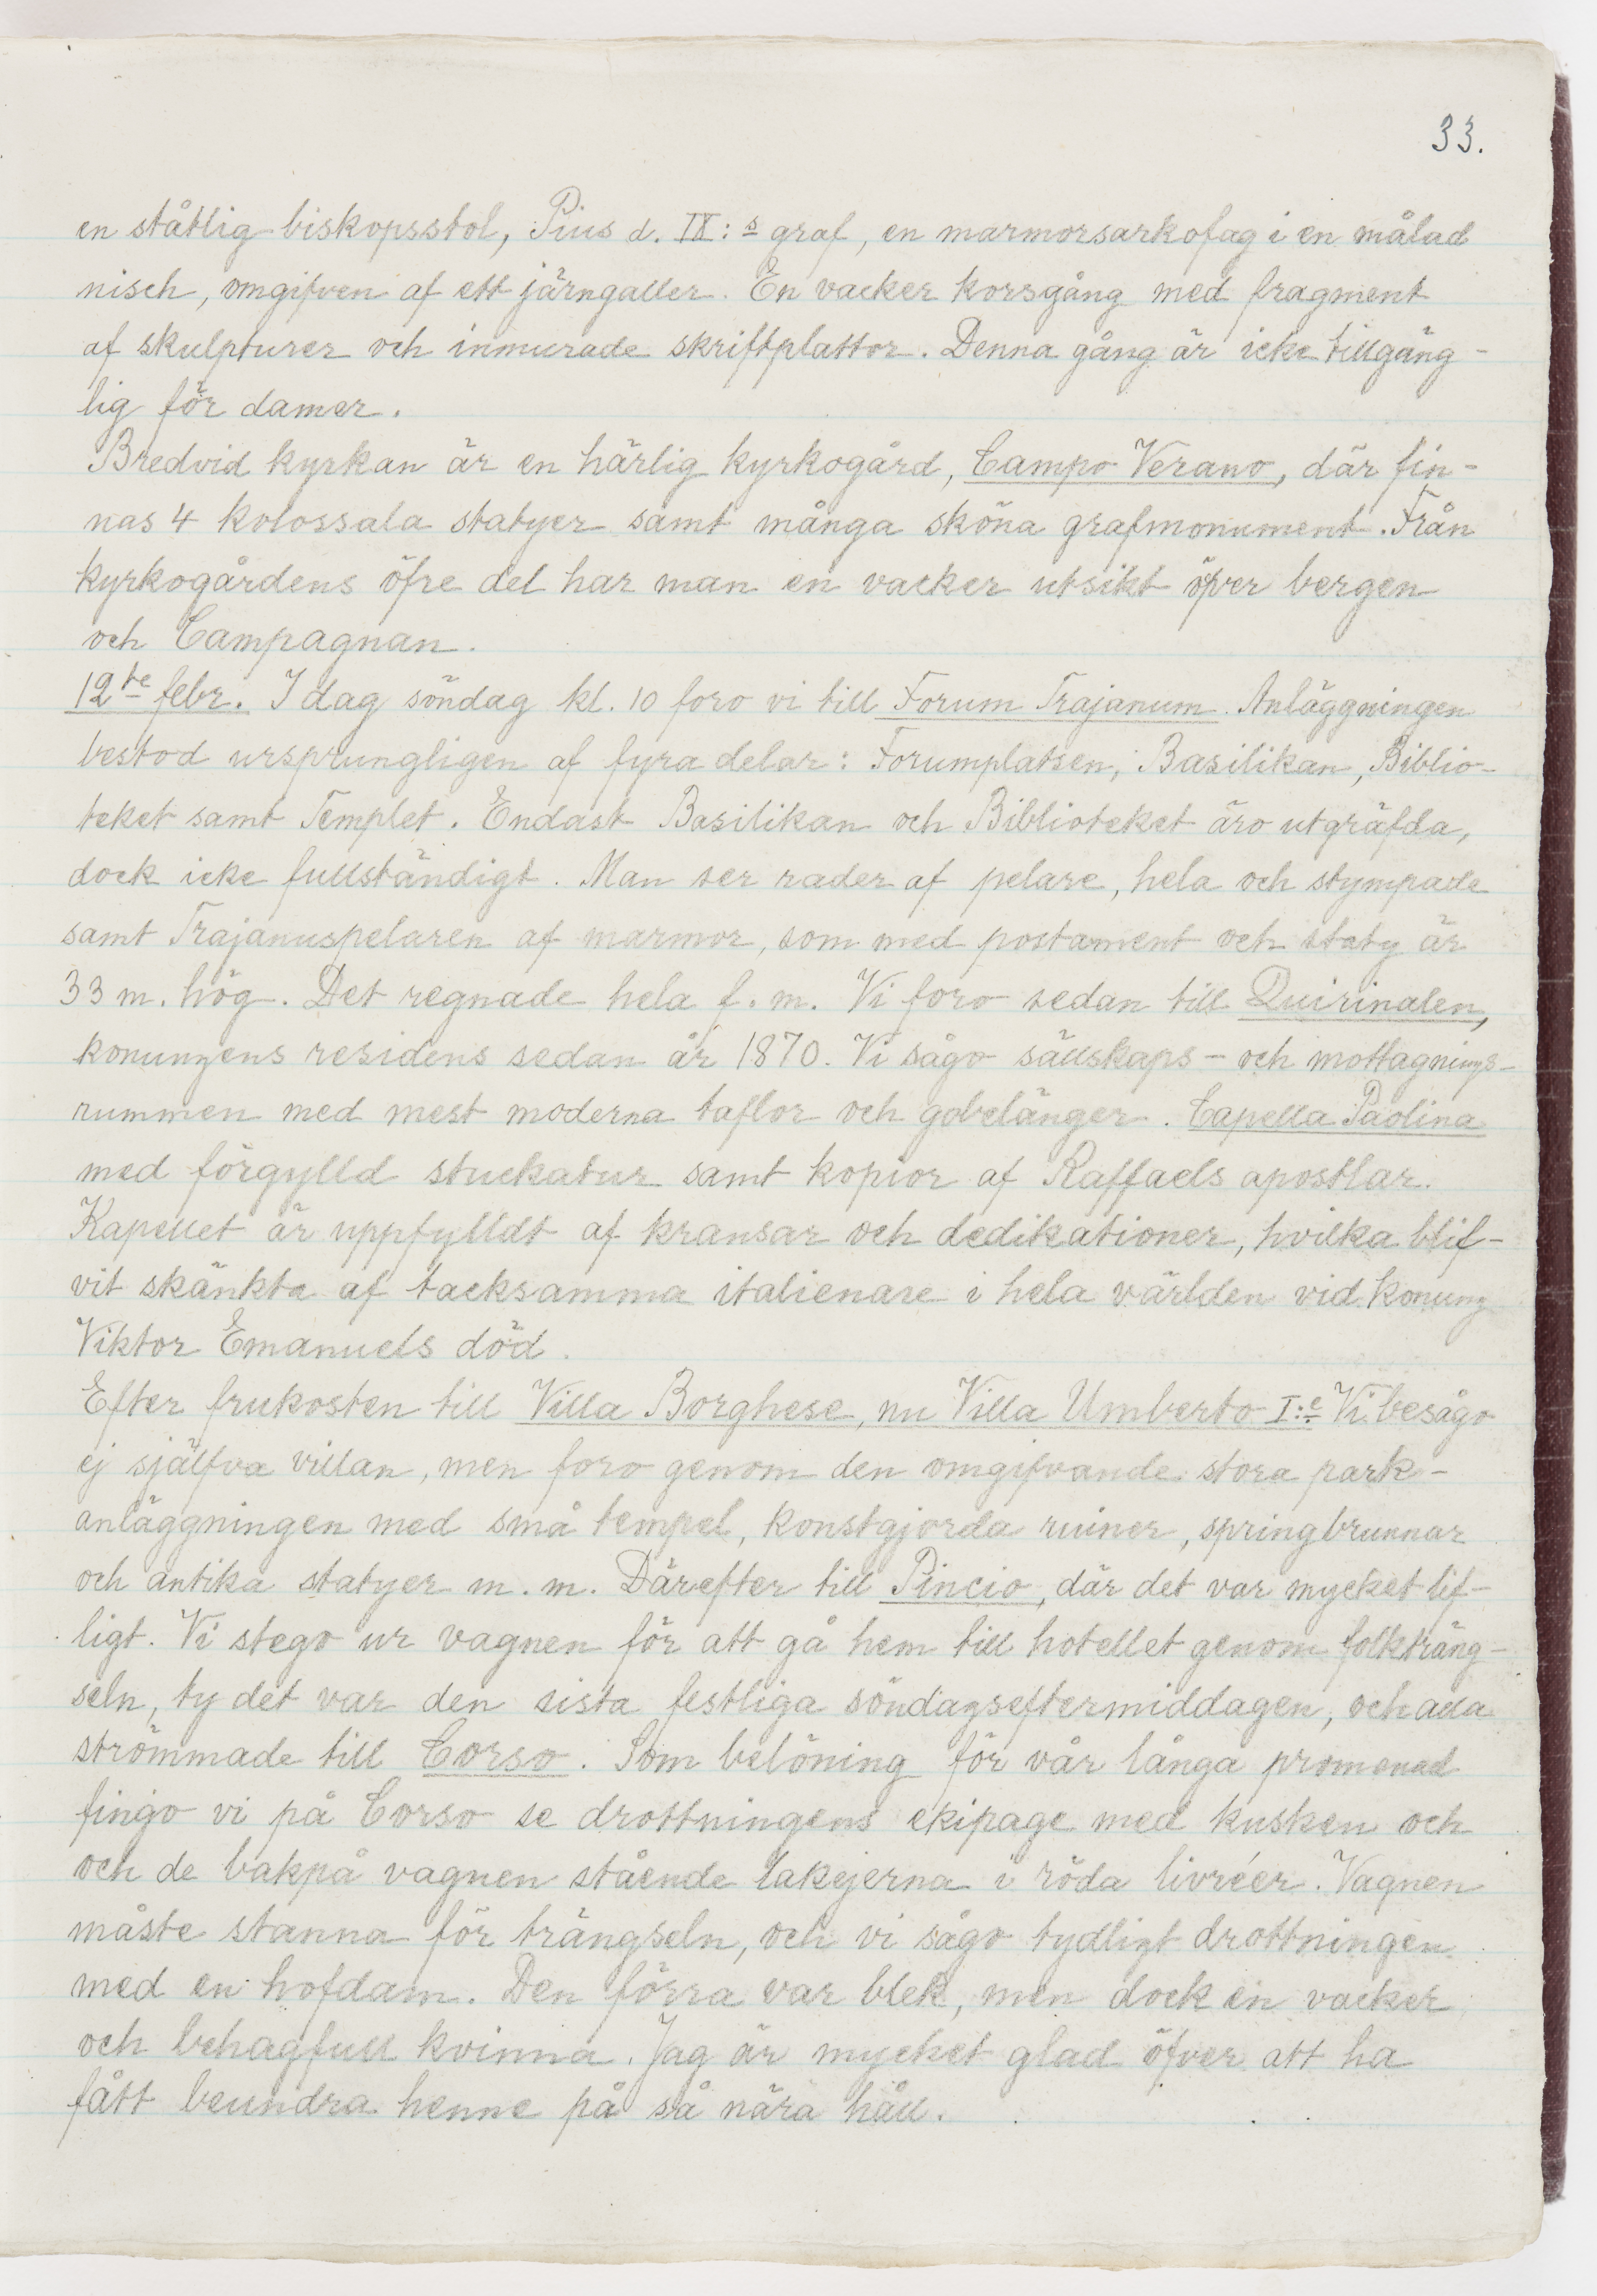 33.
en ståtlig biskopsstol, Pius d. IX:s graf, en marmorsarkofag i en målad
nisch, omgifven af ett järngaller. En vacker korsgång med fragment
af skulpturer och inmurade skriftplattor. Denna gång är icke tillgäng-
lig för damer.
Bredvid kyrkan är en härlig kyrkogård, Campo Verano, där fin-
nas 4 kolossala statyer samt många sköna grafmonument. Från
kyrkogårdens öfre del har man en vacker utsikt öfver bergen
och Campagnan.
12te febr. I dag söndag kl. 10 foro vi till Forum Trajanum. Anläggningen
bestod ursprungligen af fyra delar: Forumplatsen, Basilikan, Biblio-
teket samt Templet. Endast Basilikan och Biblioteket äro utgräfda,
dock icke fullständigt. Man ser rader af pelare, hela och stympade
samt Trajanuspelaren af marmor, som med postament och staty är
33 m. hög. Det regnade hela f. m. Vi foro sedan till Quirinalen,
konungens residens sedan år 1870. Vi sågo sällskaps- och mottagnings-
rummen med mest moderna taflor och gobelänger. Capella Paolina
med förgylld stuckatur samt kopior af Raffaels apostlar.
Kapellet är uppfylldt af kransar och dedikationer, hvilka blif-
vit skänkta af tacksamma italienare i hela världen vid konung
Viktor Emanuels död.
Efter frukosten till Villa Borghese, nu Villa Umberto I:e Vi besågo
ej själfva villan, men foro genom den omgifvande stora park-
anläggningen med små tempel, konstgjorda ruiner, springbrunnar
och antika statyer m. m. Därefter till Pincio, där det var mycket lif-
ligt. Vi stego ur vagnen för att gå hem till hotellet genom folkträng-
seln, ty det var den sista festliga söndagseftermiddagen, och alla
strömmade till Corso. Som belöning för vår långa promenad
fingo vi på Corso se drottningens ekipage med kusken och
och de bakpå vagnen stående lakejerna i röda livréer. Vagnen
måste stanna för trängseln, och vi sågo tydligt drottningen
med en hofdam. Den förra var blek, men dock en vacker
och behagfull kvinna. Jag är mycket glad öfver att ha
fått beundra henne på så nära håll.